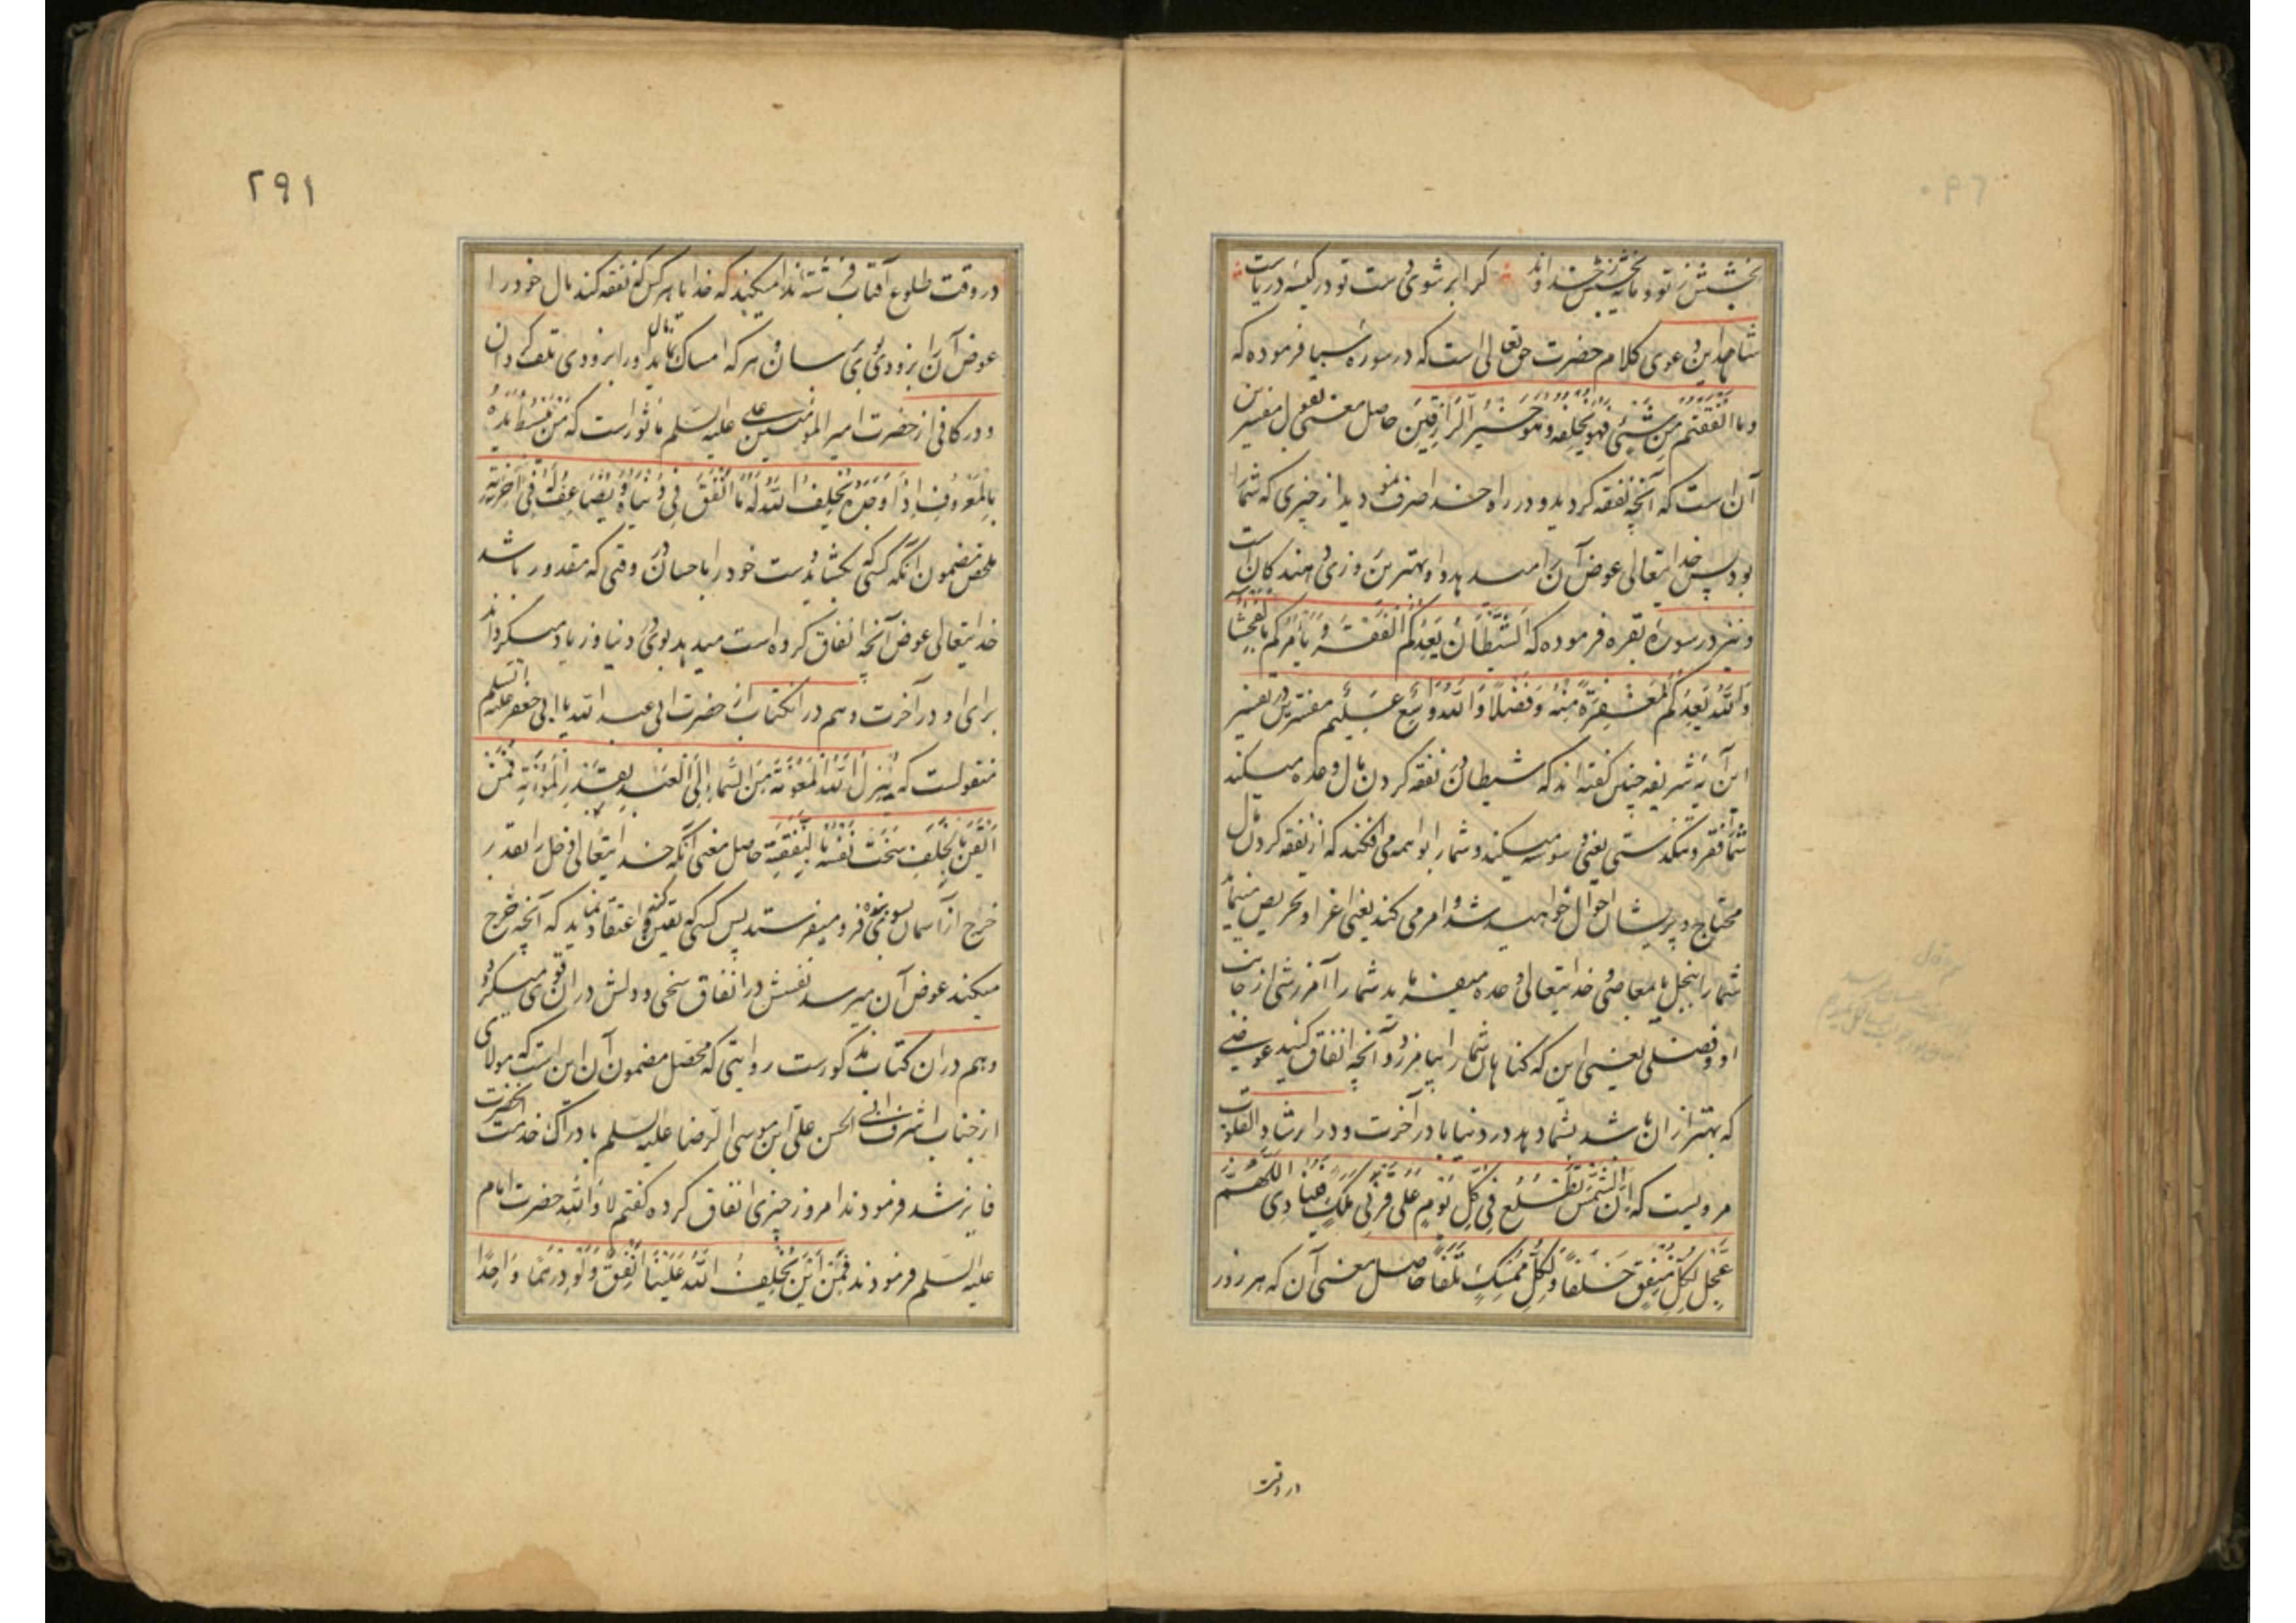 بخشش ز تو و مایه بخشش ز خداوند گر ابر شوی دست تو در کیسه دریاست
شاهد این دعوی کلام حضرت حق تعالی است که در سوره سبا فرموده که
وما انفقتم من شیئ فهو یخلفه وهو خیر الرازقین حاصل معنی بقول مفسرین
آن است که آنچه نفقه کردید و در راه خدا صرف نمودید از چیزی که شما را
بود پس خدایتعالی عوض آن را میدهد و او بهترین روزی دهندگان است
و نیز در سوره بقره فرموده که الشیطان یعدکم الفقر و یأمرکم بالفحشآء
والله یعدکم مغفرة منه وفضلا والله واسع علیم مفسرین در تفسیر
این آیه شریفه چنین گفته اند که شیطان در نفقه کردن مال وعده میکند
شما را فقر و تنگدستی یعنی وسوسه میکند و شما را بواهمه می افکند که از نفقه کردن مال
محتاج و پریشان احوال خواهید شد و امر می کند یعنی اغرا و تحریص مینماید
شما را ببخل یا معاصی و خدایتعالی وعده میفرماید شما را آمرزشی از جانب
او و فضلی یعنی این که گناهان شما را بیامرزد و آنچه انفاق کنید عوضی
که بهتر از ان باشد بشما دهد در دنیا یا در آخرت و در ارشاد القلوب
مرویست که ان الشمس تطلع فی کل یوم علی قرنی ملک فینادی اللهم
عجل لکل منفق خلفا ولکل ممسک تلفا حاصل معنی آن که هر روز
در وقت
۲۹۱
در وقت طلوع آفتاب فرشته ندا میکند که خدایا هر کس که نفقه کند مال خود را
عوض آن را بزودی بوی برسان و هر که امساک نماید مال او را بزودی تلف گردان
و در کافی از حضرت امیر المؤمنین علی علیه السلم مأثور است که من یبسط یده
بالمعروف اذا وجده یخلف الله له ما انفق فی دنیاه و یضاعف له فی آخرته
ملخص مضمون آنکه کسی که بگشاید دست خود را باحسان در وقتی که مقدور باشد
خدایتعالی عوض آنچه انفاق کرده است میدهد بوی در دنیا و زیاد میگرداند
برای او در آخرت و هم در انکتاب از حضرت ابی عبد الله یا ابی جعفر علیه السلم
منقولست که ینزل الله المعونة من السماء الی العبد بقدر المؤنة فمن
ایقن بالخلف سخت نفسه بالنفقة حاصل معنی آنکه خدایتعالی دخل را بقدر
خرج از آسمان بسوی بنده فرو میفرستد پس کسی که یقین کند و اعتقاد نماید که آنچه خرج
میکند عوض آن میرسد نفسش در انفاق سخی و دلش در ان قوی میگردد
و هم در ان کتاب مذکورست روایتی که محصل مضمون آن این است که مولای
از جناب اشرف ابی الحسن علی ابن موسی الرضا علیه السلم بادراک خدمت آنحضرت
فایز شد فرمودند امروز چیزی انفاق کرده گفتم لا والله حضرت امام
علیه السلم فرمودند فمن این یخلف الله علینا انفق ولو درهما واحدا